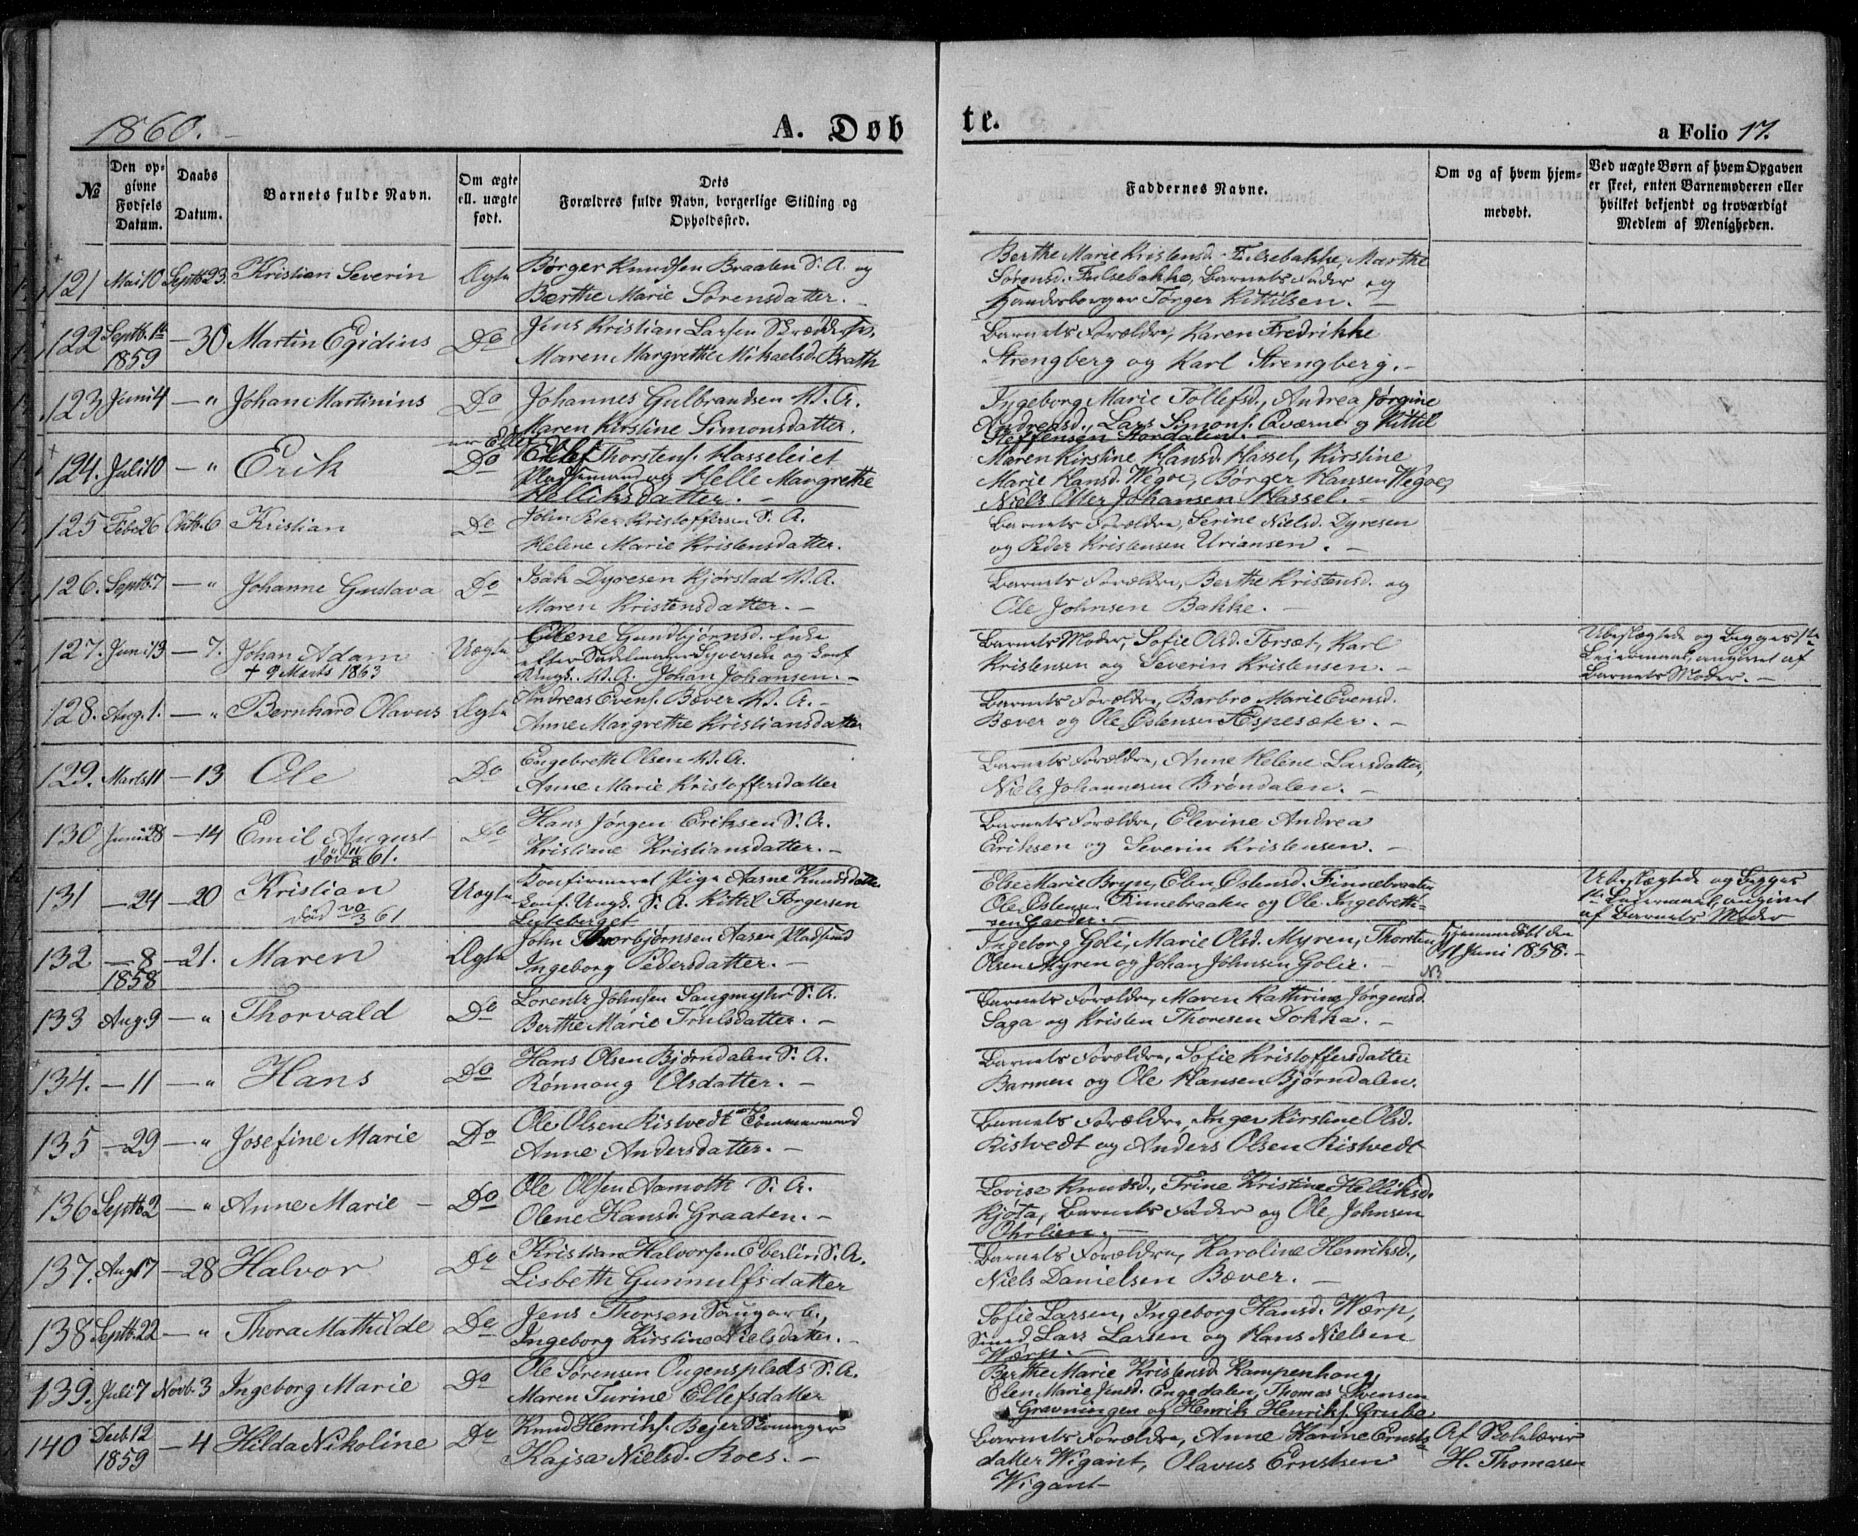 1860.
A. Døb
te.
a Folio 17.
No
Den op-
givne
Fødsels
Datum.
Daabs
Datum.
Barnets fulde Navn.
Om ægte
ell. uægte
født.
Dets
Forældres fulde Navn, borgerlige Stilling og
Opholdssted.
Faddernes Navne.
Om og af hvem hjem-
medøbt.
Ved uægte Børn af hvem Opgaven
er skeet, enten Barnemoderen eller
hvilket bekjendt og troværdigt
Medlem af Menigheden.
121 Mai 10 Septb. 23. Kristian Severin Ægte Børger Knudsen Braaten S. A. og
Berthe Marie Sørensdatter. –
Berthe Marie Kristensd. Fulsebakke, Marthe
Sørensd. Fulsebakke, Barnets Fader og
Tørger Kittilsen. –
122 Septb. 1ste – 30 Martin Egidius Do Jens Kristian Larsen
1859
Maren Margrethe Mikaelsd. Brath
Barnets Forældre, Karen Fredrikke
Strengberg og Karl Strengberg. –
123 Juni 4 – " Johan Martinius Do Johannes Gulbrandsen B. A.
Maren Kirstine Simonsdatter.
Ingeborg Marie Tollefsd., Andrea Jørgine
Andreasd., Lars Simons. Qværne og Kittil
Steffensen Stordalen. –
124. Juli 10 – " Erik Do Thorstens. Hasseleiet
Pladsemand og Helle Margrethe
Helliksdatter. –
Maren Kirstine Hansd. Hassel, Kirstine
Marie Hansd. Wegoe, Børger Hansen Wegoe,
Niels Johansen Hassel. –
125 Febr. 26 Oktb. 6 Kristian Do John Peter Kristoffersen S. A.
Helene Marie Kristensdatter.
Barnets Forældre, Serine Nielsd. Dyresen
og Peder Kristensen Uriansen. –
126. Septb. 7 – " Johanne Gustava Do Isak Dyresen Kjørstad B. A.
Maren Kristensdatter. –
Barnets Forældre, Berthe Kristensd. og
Ole Johnsen Bakke. –
127. Juni 13 – 7. Johan Adam Uægte Elene Gundbjørnsd. Enke
+ 9 Marts 1863
efter Sadelmager Syversen og Konf
Ungk. B. A. Johan Johansen. –
Barnets Moder, Sofie Olsd. Torsæt, Karl
Kristensen og Severin Kristensen. –
Ubeslægtede og begges 1ste
Leiermaal, angivet af
Barnets Moder. –
128. Aug. 1. – " Bernhard Olavus Ægte Andreas Evens. Bæver B. A. –
Anne Margrethe Kristiansdatter
Barnets Forældre, Barbro Marie Evensd.
Bæver og Ole Østensen Æspesæter. –
129. Marts 11 – 13 Ole Do Engebreth Olsen B. A.
Anne Marie Kristoffersdatter
Barnets Forældre, Anne Helene Larsdatter,
Niels Johannesen Brøndalen. –
130 Juni 28 – 14 Emil August Do Hans Jørgen Eriksen S. A.
død 11/8 61.
Kristiane Kristiansdatter. –
Barnets Forældre, Elevine Andrea
Eriksen og Severin Kristensen. –
131 – 24 – 20 Kristian Uægte Konfirmeret Pige Aasne Knudsdatter
død 20/3 61
Konf. Ungk. S. A. Kittil Tørgersen
Luteberget
Else Marie Bryn, Elen Østensd. Finnebraaten
Ole Østensen Finnebraaten og Ole Ingebreth-
sen Garder. –
Ubeslægtede og begges
1ste Leiermaal, angivet
af Barnets Moder
132 – 8 – 21. Maren Ægte John Thorbjørnsen Aasen Pladsmd
1858
Ingeborg Pedersdatter. –
Ingeborg Goli, Marie Olsd. Myren, Thorsten
Olsen Myren og Johan Johnsen Golie. –
Hjemmedøbt den
11 Juni 1858. –
NB
133 Aug. 9 – " Thorvald Do Lorentz Johnsen Saugmyhr S. A.
Berthe Marie Trulsdatter. –
Barnets Forældre, Maren Kathrine Jørgensd.
Saga og Kristen Thoresen Dokka. –
134. – 11 – " Hans Do Hans Olsen Bjørndalen S. A.
Rønnaug Olsdatter. –
Barnets Forældre, Sofie Kristoffersdatter
Barmen og Ole Hansen Bjørndalen.
135 – 29 – " Josefine Marie Do Ole Olsen Ristvedt Tømmermand
Anne Andersdatter. –
Barnets Forældre, Inger Kirstine Olsd.
Ristvedt og Anders Olsen Ristvedt
136 Septb. 2 – " Anne Marie – Do Ole Olsen Aamoth S. A.
Olene Hansd. Graaten. –
Lovise Knudsd., Trine Kristine Helliksd.
Kjøta, Barnets Fader og Ole Johnsen
Øhrlien. –
137. Aug. 17 – 28 Halvor Do Kristian Halvorsen Eberlin S. A.
Lisbeth Gunnulfsdatter
Barnets Forældre, Karoline Henriksd.,
Niels Danielsen Bæver. –
138 Septb. 22 – " Thora Mathilde Do Jens Thorsen Saugarb.,
Ingeborg Kirstine Nielsdatter. –
Sofie Larsen, Ingeborg Hansd. Wærp,
Smed Lars Larsen og Hans Nielsen
Wærp. –
139. Juli 7 Novb. 3 Ingeborg Marie Do Ole Sørensen Eugensplads S. A.
Maren Turine Ellefsdatter
Berthe Marie Kristensd. Kampenhaug,
Elen Marie Jensd. Engedalen, Thomas Svensen
Gravningen og Henrik Henriks. Grube
140 Decb. 12 – 4 Hilda Nikoline Do Knud Henriks. Bejer
1859
Kajsa Nielsd. Roes. –
Barnets Forældre, Anne Karine Ernst-
datter Wigant, Olavus Ernstsen
Wigant –
Af Skolelærer
H. Thomasen